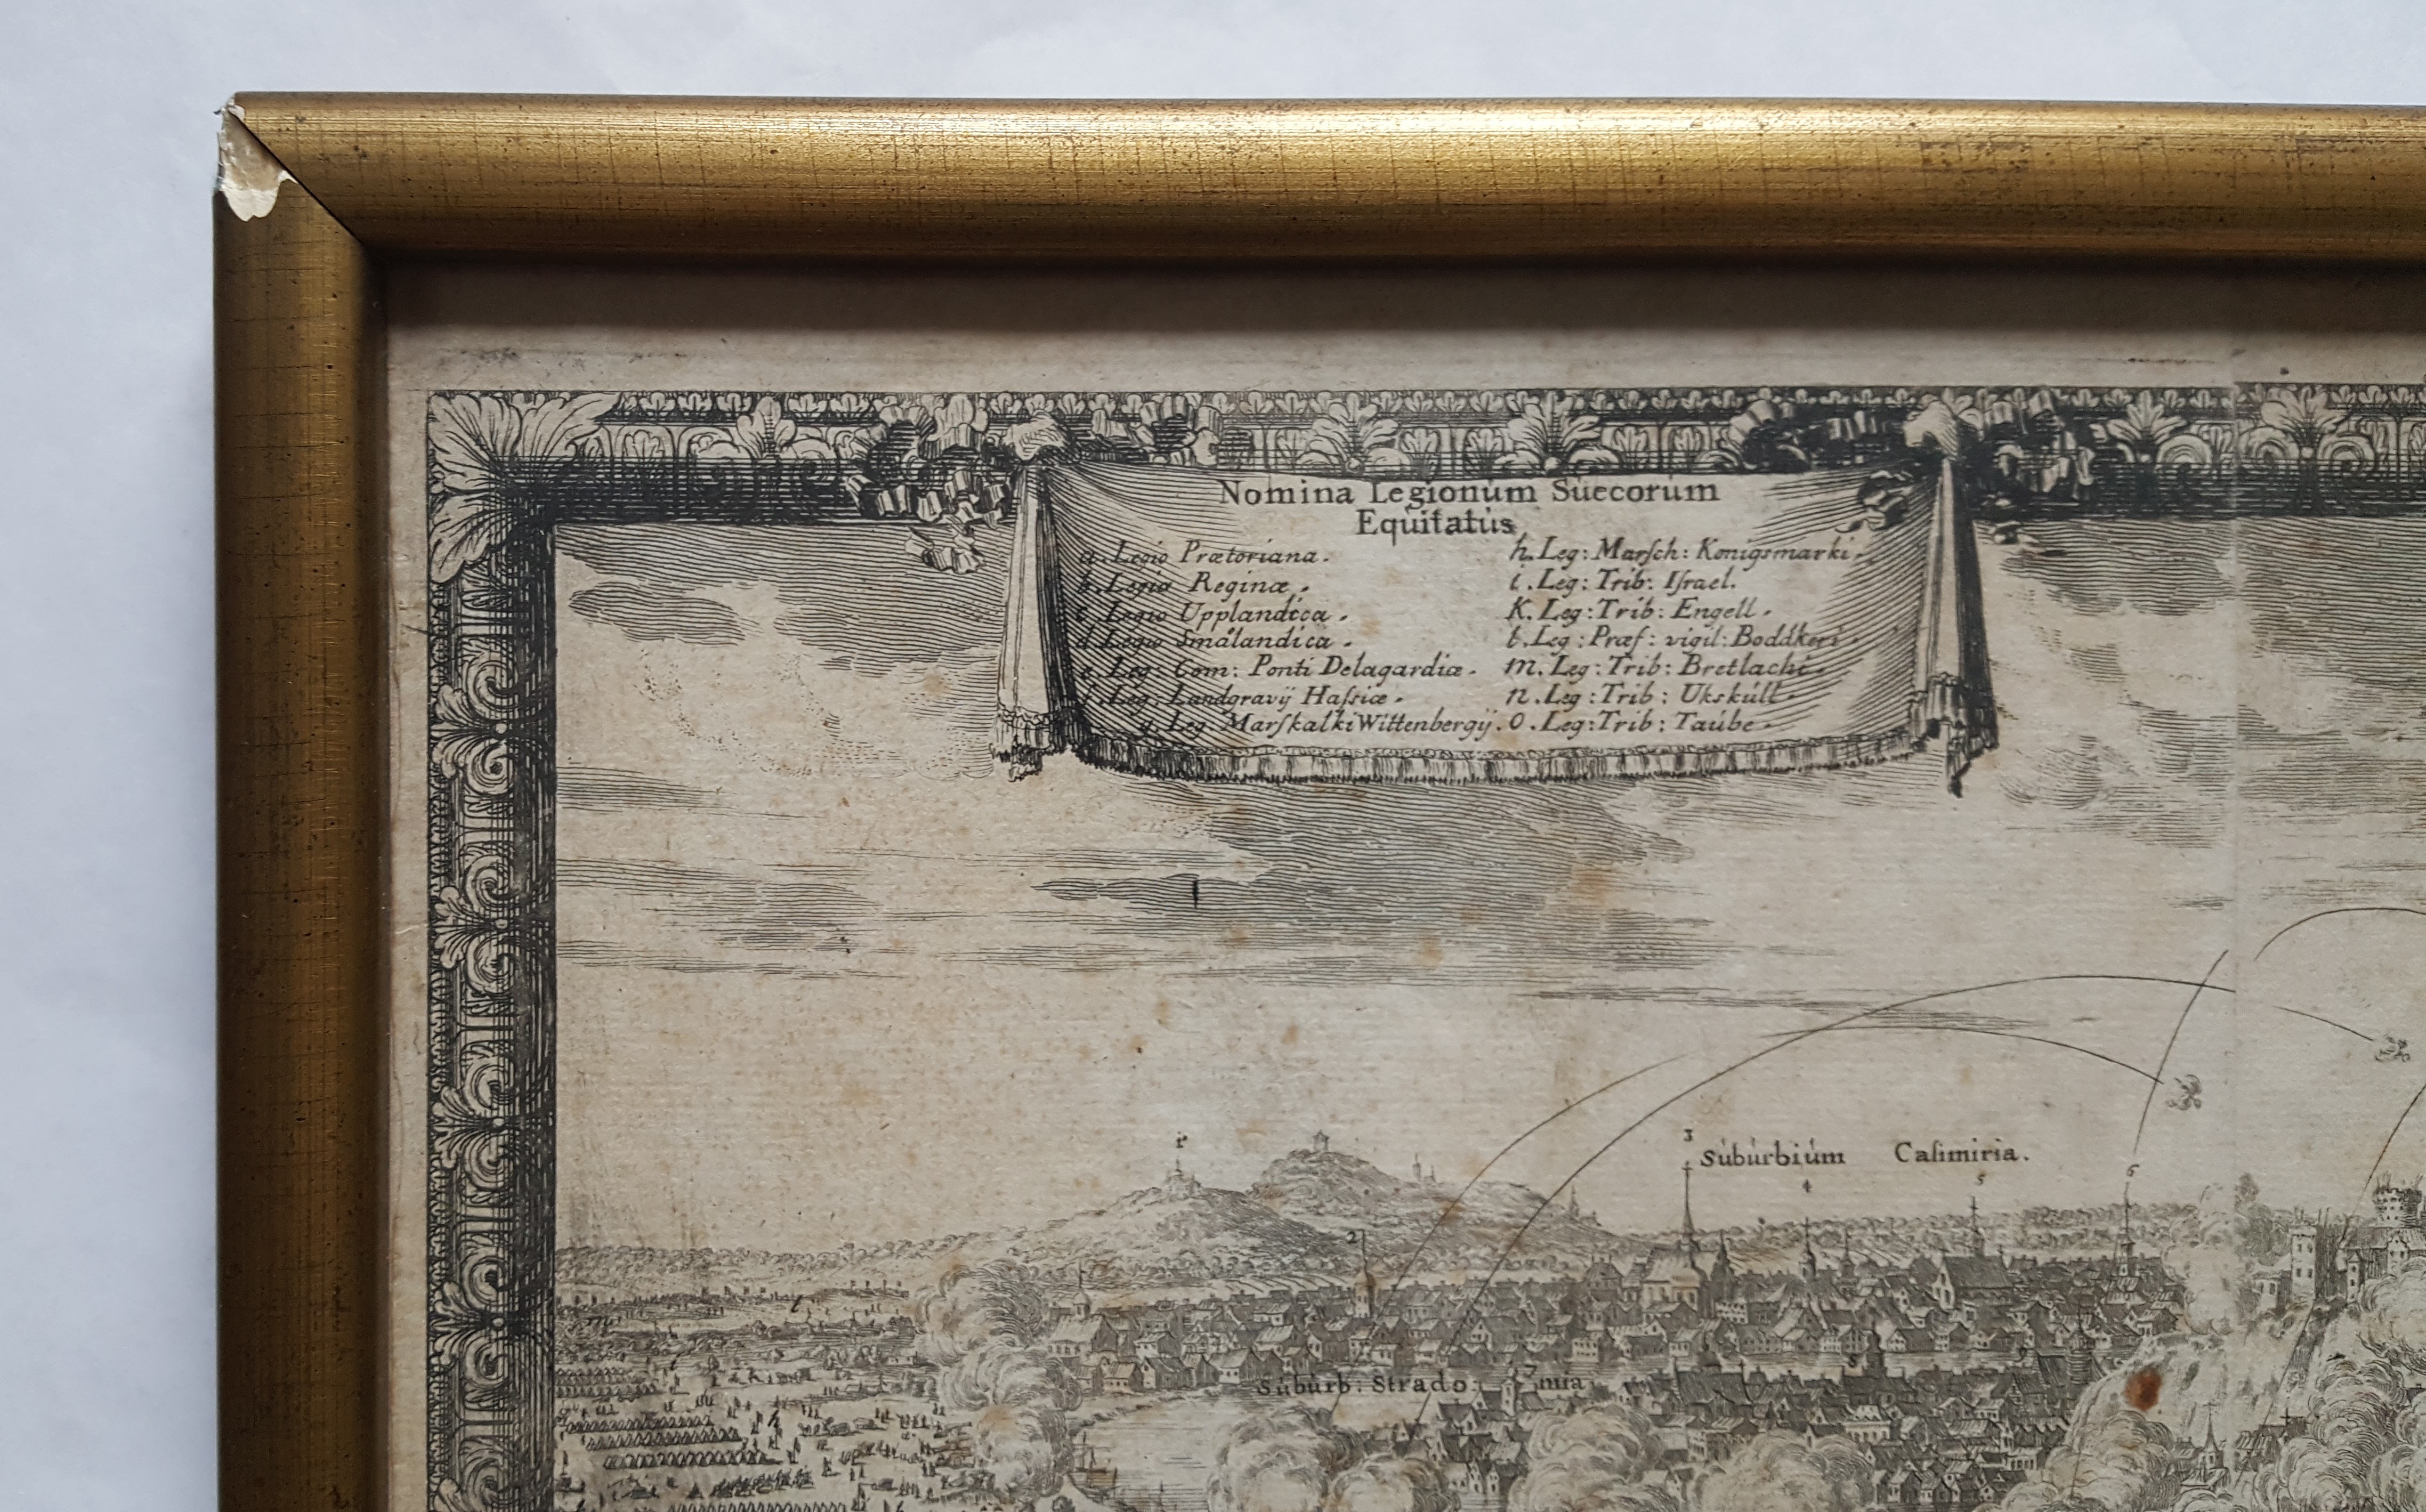 Nomina Legionúm Súecorúm
Equitatús
a. Legio Prætoriana.
b. Legio Reginæ.
c. Legio Upplandica.
d Legio Smålandica.
e Leg: Com: Ponti Delagardiæ.
f. Leg: Landgravij Haſsiæ.
g. Leg Marſkalki Wittenbergij.
h. Leg: Marſch: Konigsmarki.
i. Leg: Trib: Iſrael.
K. Leg: Trib: Engell.
l. Leg: Præf: vigil: Boddkeri.
m. Leg: Trib: Bretlachi.
n. Leg: Trib: Ukskúll.
O. Leg: Trib: Taúbe.
1
3
Súbúrbiúm Caſimiria.
4
5
6
2
7
8
Súbúrb: Strado: mia
l
h